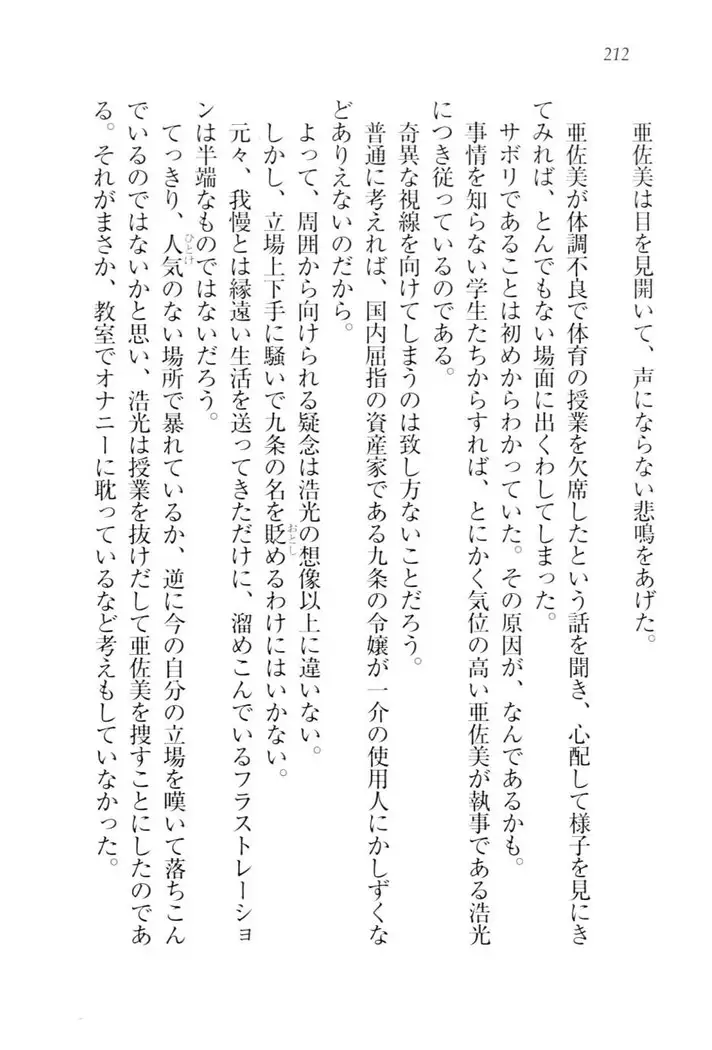 212
亜佐美は目を見開いて、声にならない悲鳴をあげた。
亜佐美が体調不良で体育の授業を欠席したという話を聞き、心配して様子を見にき
てみれば、とんでもない場面に出くわしてしまった。
サボリであることは初めからわかっていた。その原因が、なんであるかも。
事情を知らない学生たちからすれば、とにかく気位の高い亜佐美が執事である浩光
につき従っているのである。
奇異な視線を向けてしまうのは致し方ないことだろう。
普通に考えれば、国内屈指の資産家である九条の令嬢が一介の使用人にかしずくな
どありえないのだから。
よって、周囲から向けられる疑念は浩光の想像以上に違いない。
しかし、立場上下手に騒いで九条の名を貶おとしめるわけにはいかない。
元々、我慢とは縁遠い生活を送ってきただけに、溜めこんでいるフラストレーショ
ンは半端なものではないだろう。
てっきり、人気ひとけのない場所で暴れているか、逆に今の自分の立場を嘆いて落ちこん
でいるのではないかと思い、浩光は授業を抜けだして亜佐美を捜すことにしたのであ
る。それがまさか、教室でオナニーに耽っているなど考えもしていなかった。